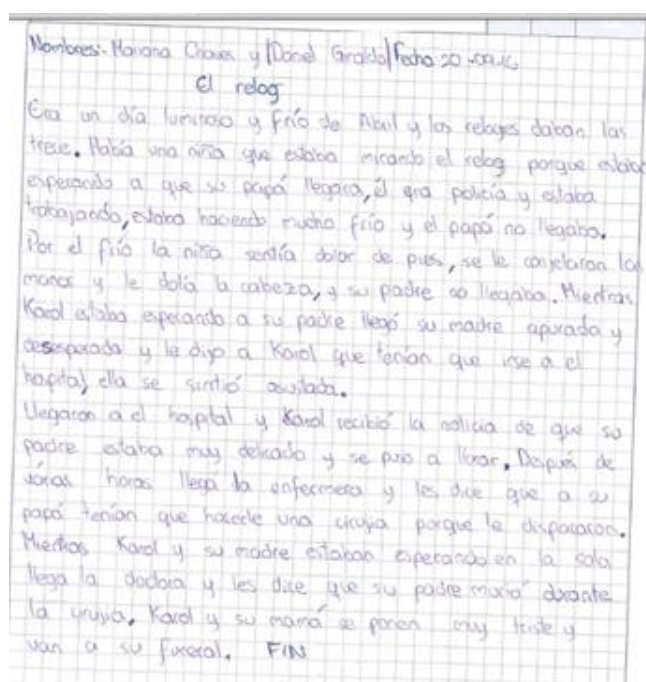 Nombres: Mariana Chaves y Daniel Giraldo Fecha 20-09-16
El relog
Era un día luminoso y frío de Abril y los relojes daban las
trece. Había una niña que estaba mirando el relog porque estaba
esperando a que su papá llegara, él era policía y estaba
trabajando, estaba haciendo mucho frío y el papá no llegaba.
Por el frío la niña sentía dolor de pies, se le conjelaron las
manos y le dolía la cabeza, y su padre no llegaba. Mientras
Karol estaba esperando a su padre llegó su madre apurada y
desesperada y le dijo a Karol que tenían que irse a el
hospital, ella se sintió asustada.
Llegaron a el hospital y Karol recibió la noticia de que su
padre estaba muy delicado y se puso a llorar. Después de
várias horas llega la enfermera y les dice que a su
papá tenían que hacerle una cirujía porque le dispararon.
Mientras Karol y su madre estaban esperando en la sala
llega la doctora y les dice que su padre murió durante
la cirujia, Karol y su mamá se ponen muy triste y
van a su funeral. FIN